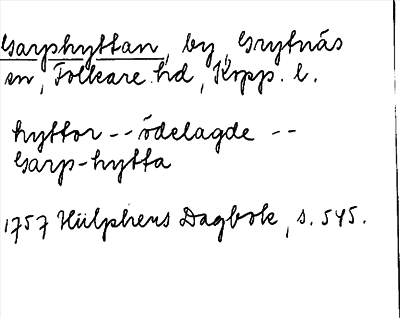 Garphyttan, by, Grytnäs
sn, Folkare hd, Kopp. l.
hyttor -- ödelagde --
Garp-hytta
1757 Hülphers Dagbok, s. 545.